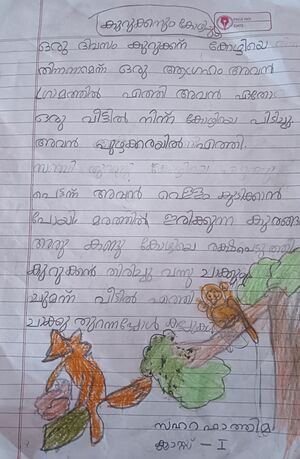 കുറുക്കനും കോഴിയും
ഒരു ദിവസം കുറുക്കന് കോഴിയെ
തിന്നണമെന്ന് ഒരു ആഗ്രഹം അവൻ
ഗ്രാമത്തിൽ എത്തി അവൻ ഏതോ
ഒരു വീട്ടിൽ നിന്ന് കോഴിയെ പിടിച്ചു
അവൻ പുഴക്കരയിൽ എത്തി.
പെട്ടന്ന് അവൻ വെള്ളം കുടിക്കാൻ
പോയി മരത്തിൽ ഇരിക്കുന്ന കുരങ്ങ
അതു കണ്ടു കോഴിയെ രക്ഷപെടുത്തി
കുറുക്കൻ തിരിച്ചു വന്നു ചാക്കുമാ
ചുമന്ന് വീട്ടിൽ എത്തി
ചാക്കു തുറന്നപ്പോൾ
സഹറ ഫാത്തിമ
ക്ലാസ്സ് - I